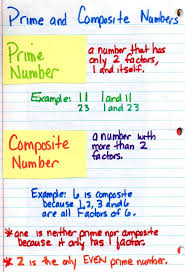 Prime and Composite Numbers
Prime
Number
a number that has
only 2 factors,
1 and itself.
Example: 11 1 and 11
23 1 and 23
Composite
Number
a number with
more than 2
factors.
Example: 6 is composite
because 1, 2, 3 and 6
are all factors of 6.
* one is neither prime nor composite
because it only has 1 factor.
* 2 is the only EVEN prime number.